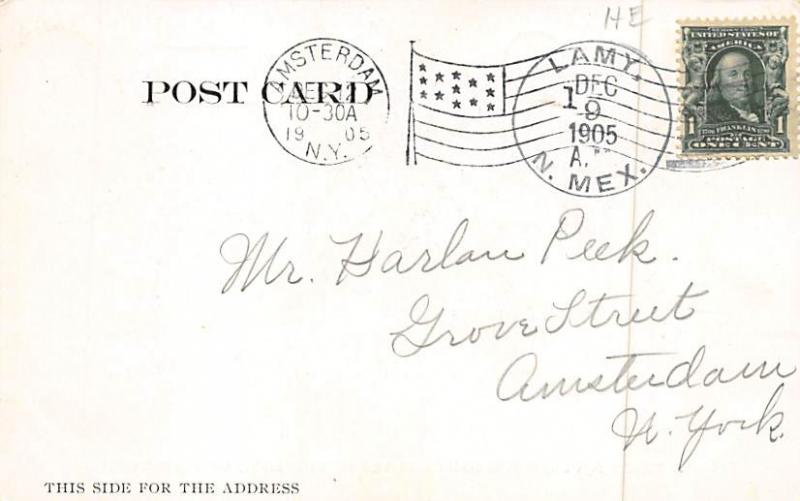 HE
UNITED STATES OF AMERICA
AMSTERDAM
DEC 12
10-30A
19 05
N.Y.
POST CARD
LAMY.
DEC
19
1905
A.
N. MEX.
1 FRANKLIN 1
POSTAGE
ONE CENT
Mr. Harlan Peek.
Grove Street
Amsterdam
N. York.
THIS SIDE FOR THE ADDRESS